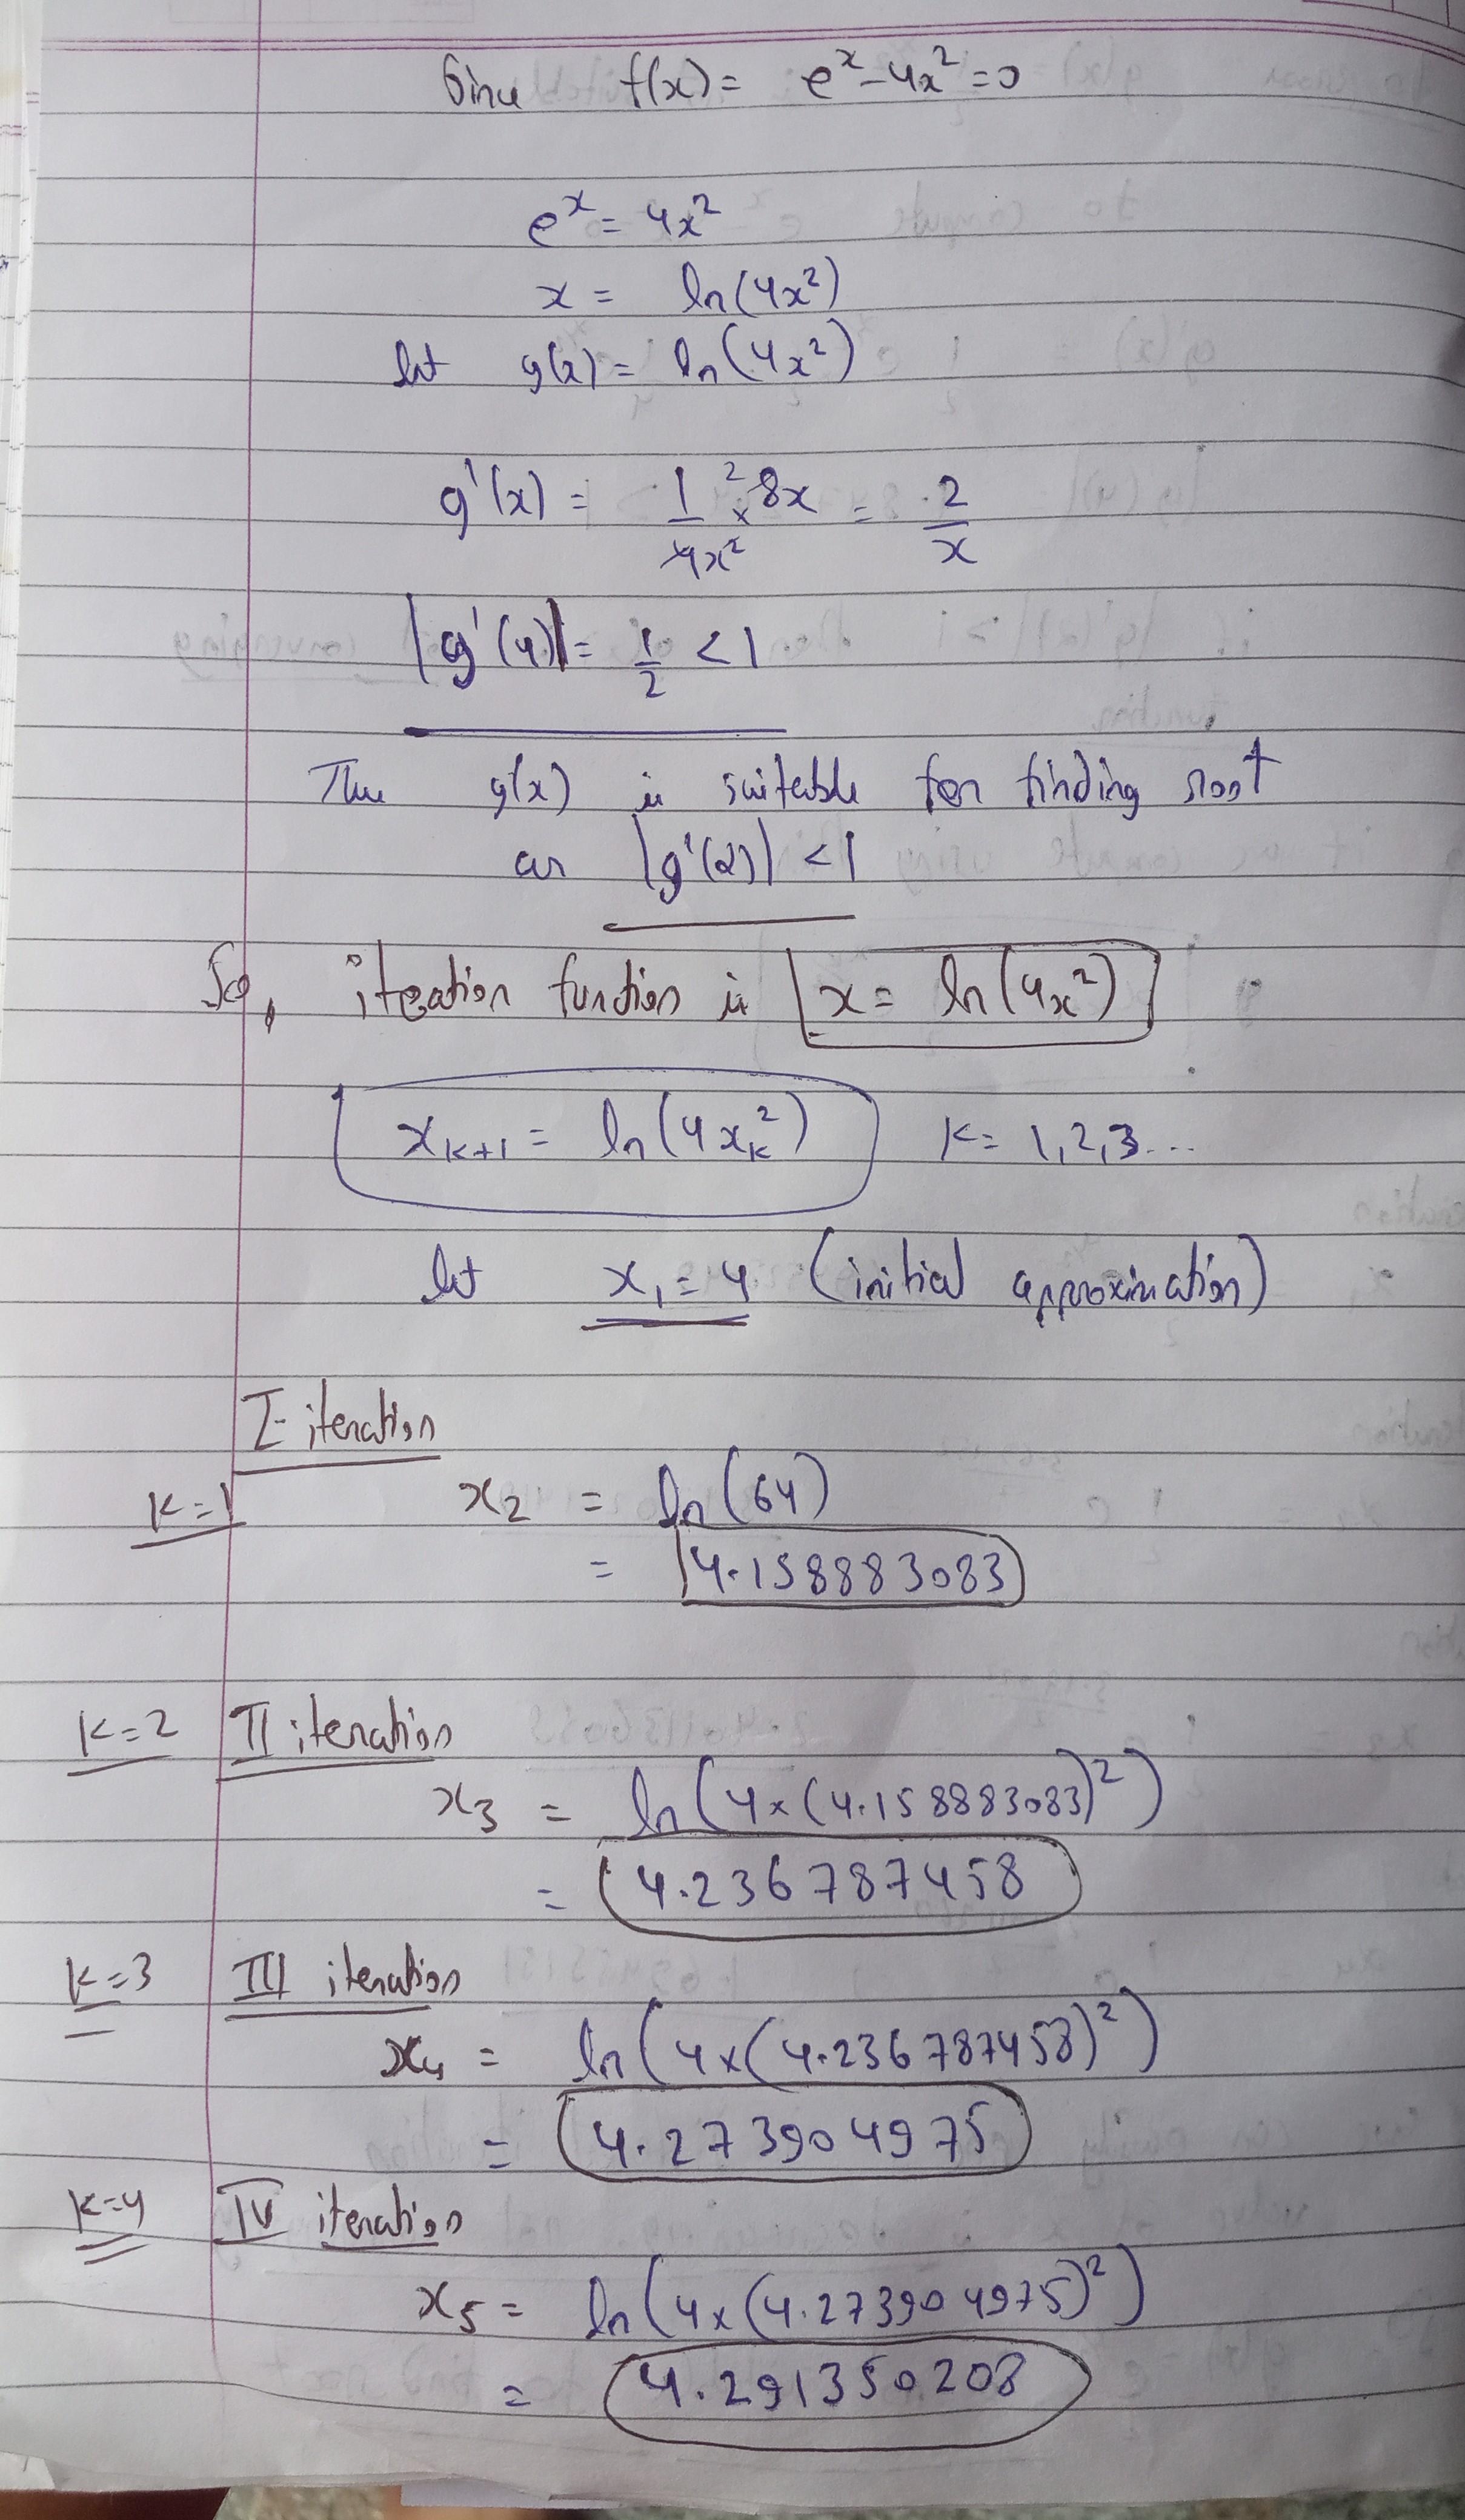 Since f(x) = e^x - 4x^2 = 0
e^x = 4x^2
x = ln(4x^2)
let g(x) = ln(4x^2)
g'(x) = 1/4x^2 × 8x = 2/x
|g'(4)| = 1/2 < 1
The g(x) is suitable for finding root
as |g'(α)| < 1
So, iteration function is x = ln(4x^2)
x_{k+1} = ln(4x_k^2) K = 1,2,3...
let x_1 = 4 (initial approximation)
I iteration
K=1 x_2 = ln(64)
= 4.158883083
K=2 II iteration
x_3 = ln(4×(4.158883083)^2)
= 4.236787458
K=3 III iteration
x_4 = ln(4×(4.236787458)^2)
= 4.273904975
K=4 IV iteration
x_5 = ln(4×(4.273904975)^2)
= 4.291350208